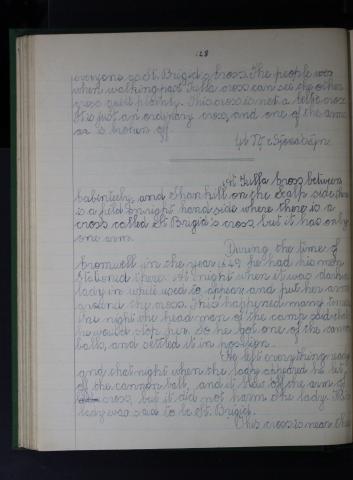 128
everyone as St. Brigid's Cross. The people
when walking past Tulla cross can see the other
cross quite plainly. This cross is not a celtic cross
It is just an ordinary cross, and one of the arms
is broken off.
At Tulla Cross between
and on the Scalp side there
is a field on right hand side where there is a
cross called St Brigid's cross but it has only
one arm.
During the time of
Cromwell in the year 1649 he had his men
stationed there. At night when it was dark a
lady in white used to appear and put her arm
around the cross. This happened many times
One night the head man of the camp said that
he would stop her. So he got one of the cannon
balls, and settled it in position.
He left everything ready
and that night when the lady appeared he let
off the cannon ball, and it blew off the arm of
cross, but it did not harm the lady. This
lady was said to be St. Brigid.
This cross is near the